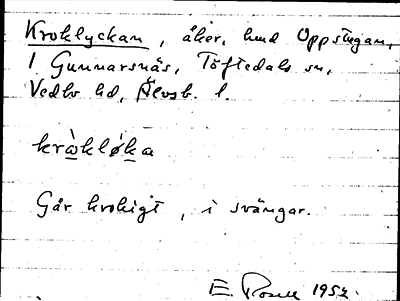 Kroklyckan, åker, hmd Oppstugan,
1 Gunnarsnäs, Töftedals sn,
Vedbo hd, Älvsb. l.
kròklø̀ka
Går krokigt, i svängar.
E. Rosell 1952.